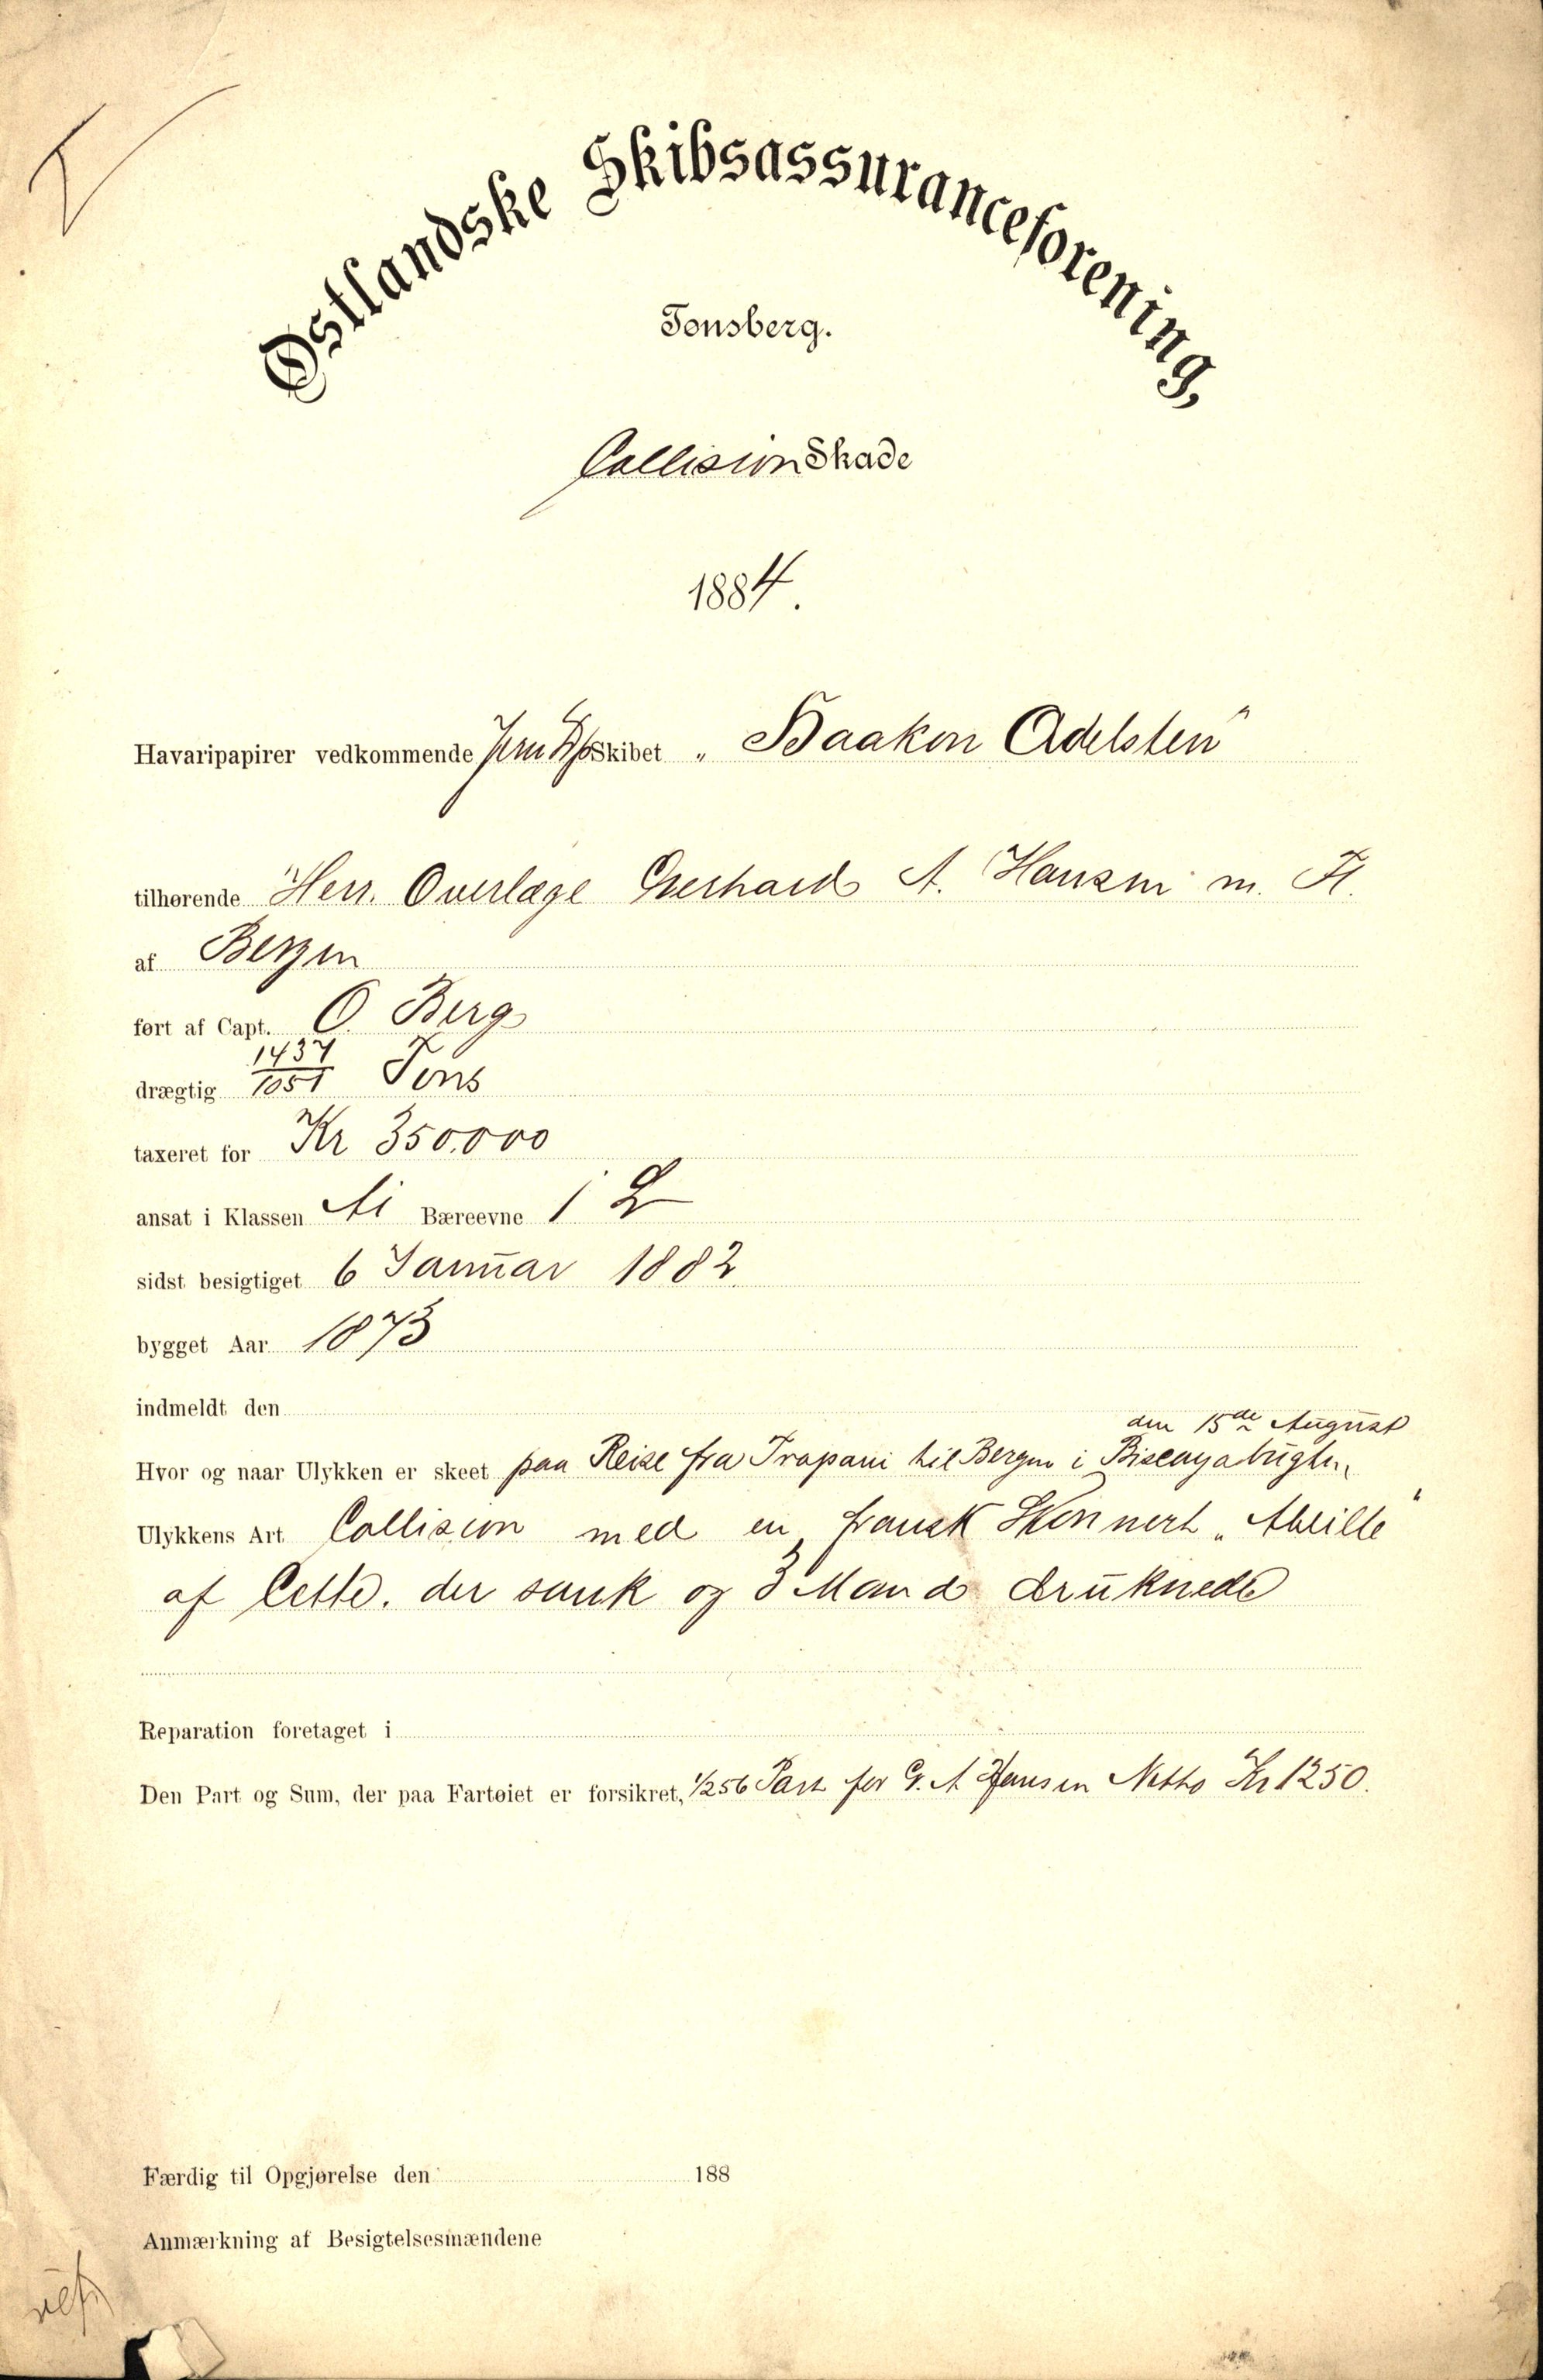 Østlandske Skibsassuranceforening,
Tønsberg.
Collision Skade
1884.
Havaripapirer vedkommende Jern D/p Skibet „Haakon Adelsten"
tilhørende Herr. Overlæge Gerhard A. Hansen m. Fl.
af Bergen
ført af Capt. O. Berg
drægtig 1437/1051 Tons
taxeret for Kr 350.000
ansat i Klassen A1 Bæreevne
sidst besigtiget 6 Januar 1882
bygget Aar 1873
indmeldt den
den 15de August
Hvor og naar Ulykken er skeet paa Reise fra Trapani til Bergen i Biscayabugten,
Ulykkens Art Collision med en fransk Skonnert „Abeille"
af Cette. der sank og 3 Mand druknede
Reparation foretaget i
Den Part og Sum, der paa Fartøiet er forsikret, 1/256 Part for G. A Hansen Netto Kr 1250.
Færdig til Opgjørelse den 188
Anmærkning af Besigtelsesmændene